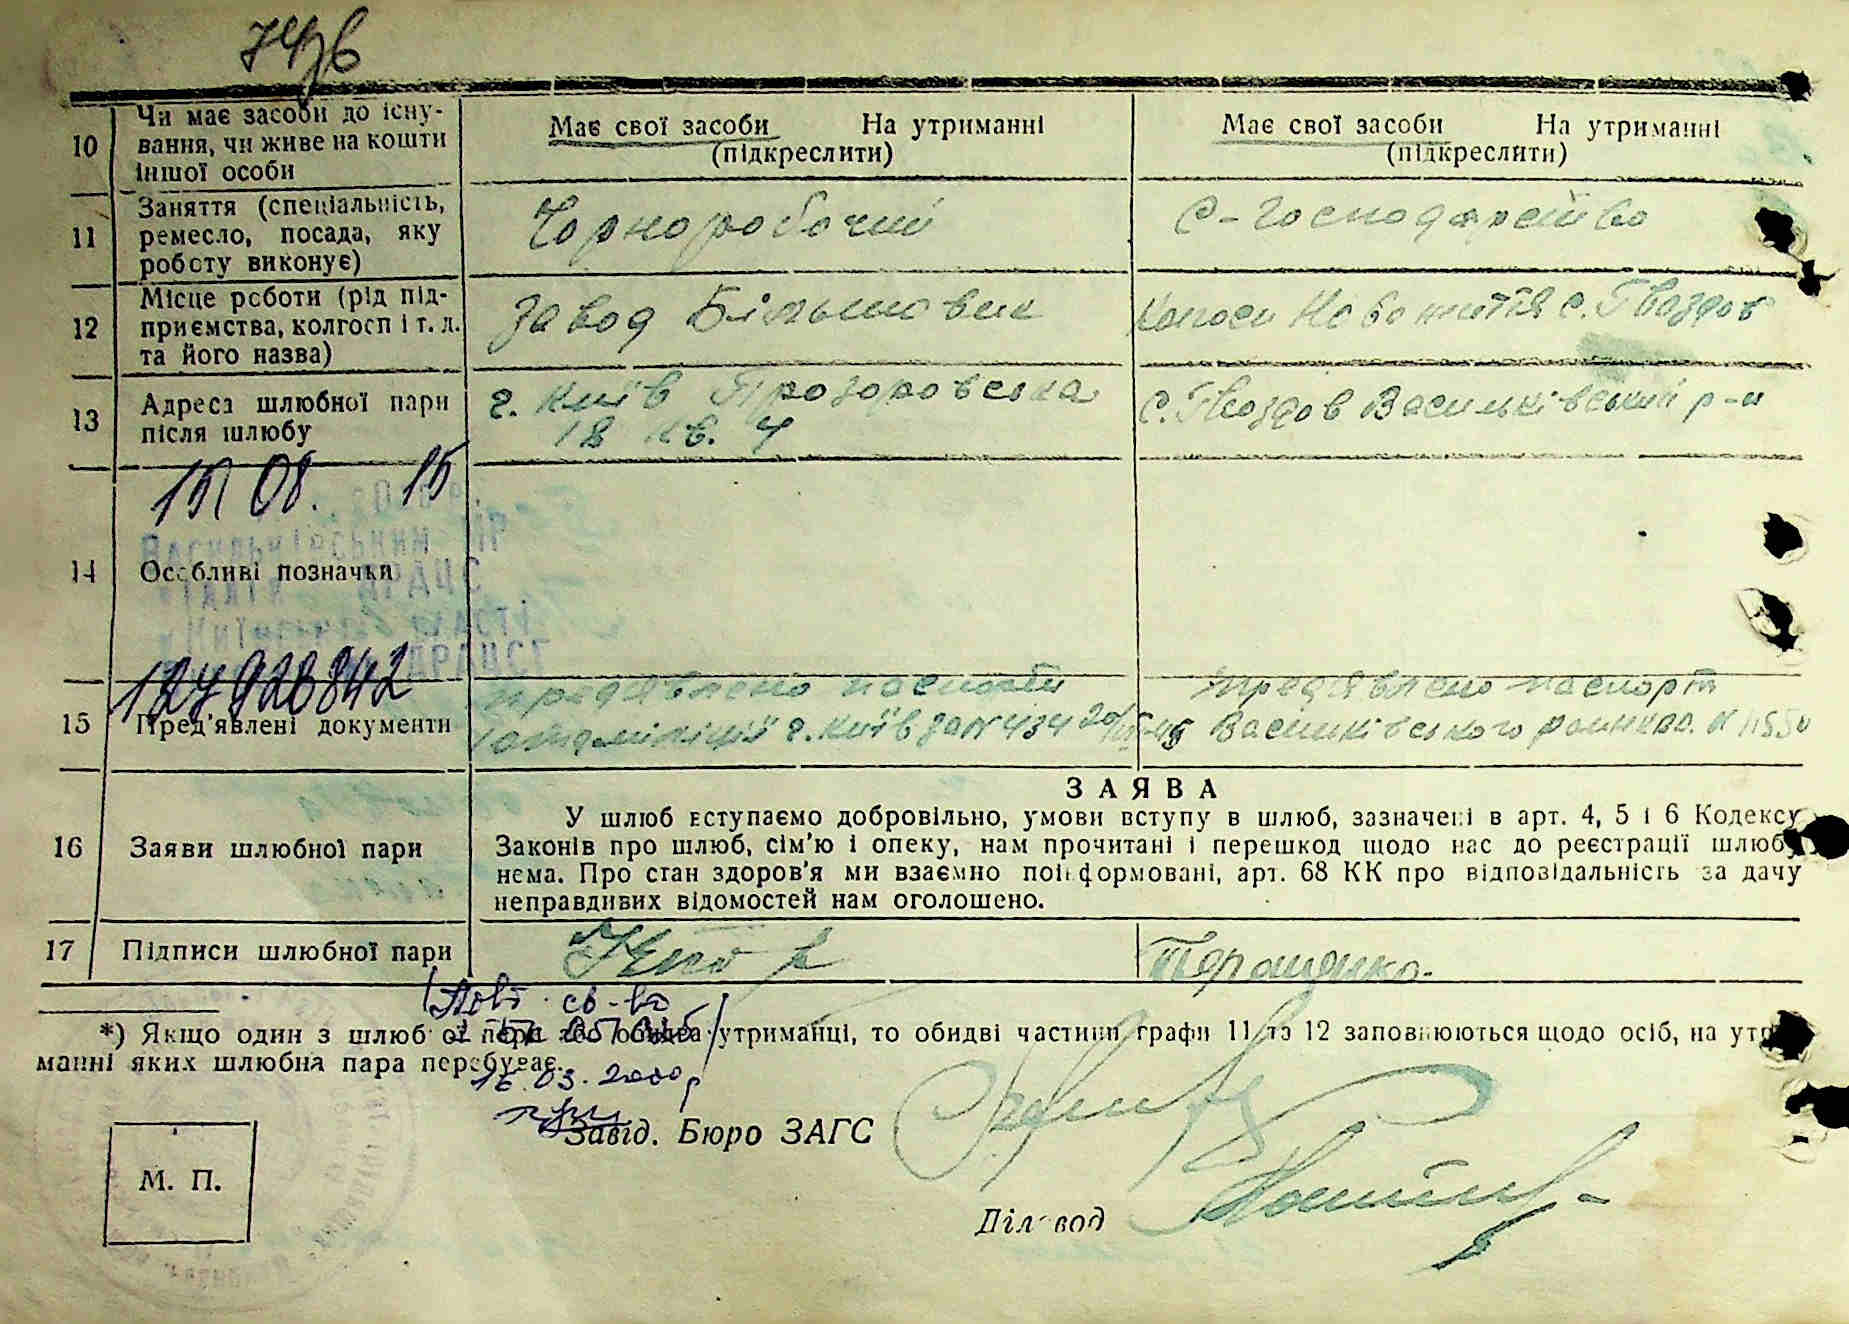 74рв
10 Чи має засоби до існу-
вання, чи живе на кошти
іншої особи
Має свої засоби На утриманні
(підкреслити)
Має свої засоби На утриманні
(підкреслити)
11 Заняття (спеціальність,
ремесло, посада, яку
роботу виконує)
Чорноробочий
С-господарство
12 Місце роботи (рід під-
приємства, колгосп і т. д.
та його назва)
Завод Більшовик
с. Гвоздов
13 Адреса шлюбної пари
після шлюбу
г. Київ Прозоровська
18 кв. 4
с. Гвоздов Васильківський р-н
08. 15
Васильківський
14 Особливі позначки
ДРАЦС
області
127920842
15 Пред'явлені документи
предявлено паспорт
г. Київ за N 434
предявлено паспорт
Васильківського
16 Заяви шлюбної пари
ЗАЯВА
У шлюб вступаємо добровільно, умови вступу в шлюб, зазначені в арт. 4, 5 і 6 Кодексу
Законів про шлюб, сім'ю і опеку, нам прочитані і перешкод щодо нас до реєстрації шлюбу
нема. Про стан здоров'я ми взаємно поінформовані, арт. 68 КК про відповідальність за дачу
неправдивих відомостей нам оголошено.
17 Підписи шлюбної пари
Терещенко
Повт. св-во
*) Якщо один з шлюбної пари або обидва утриманці, то обидві частини графи 11 та 12 заповнюються щодо осіб, на утри-
манні яких шлюбна пара перебуває.
16.03.2000р
Завід. Бюро ЗАГС
М. П.
Діловод